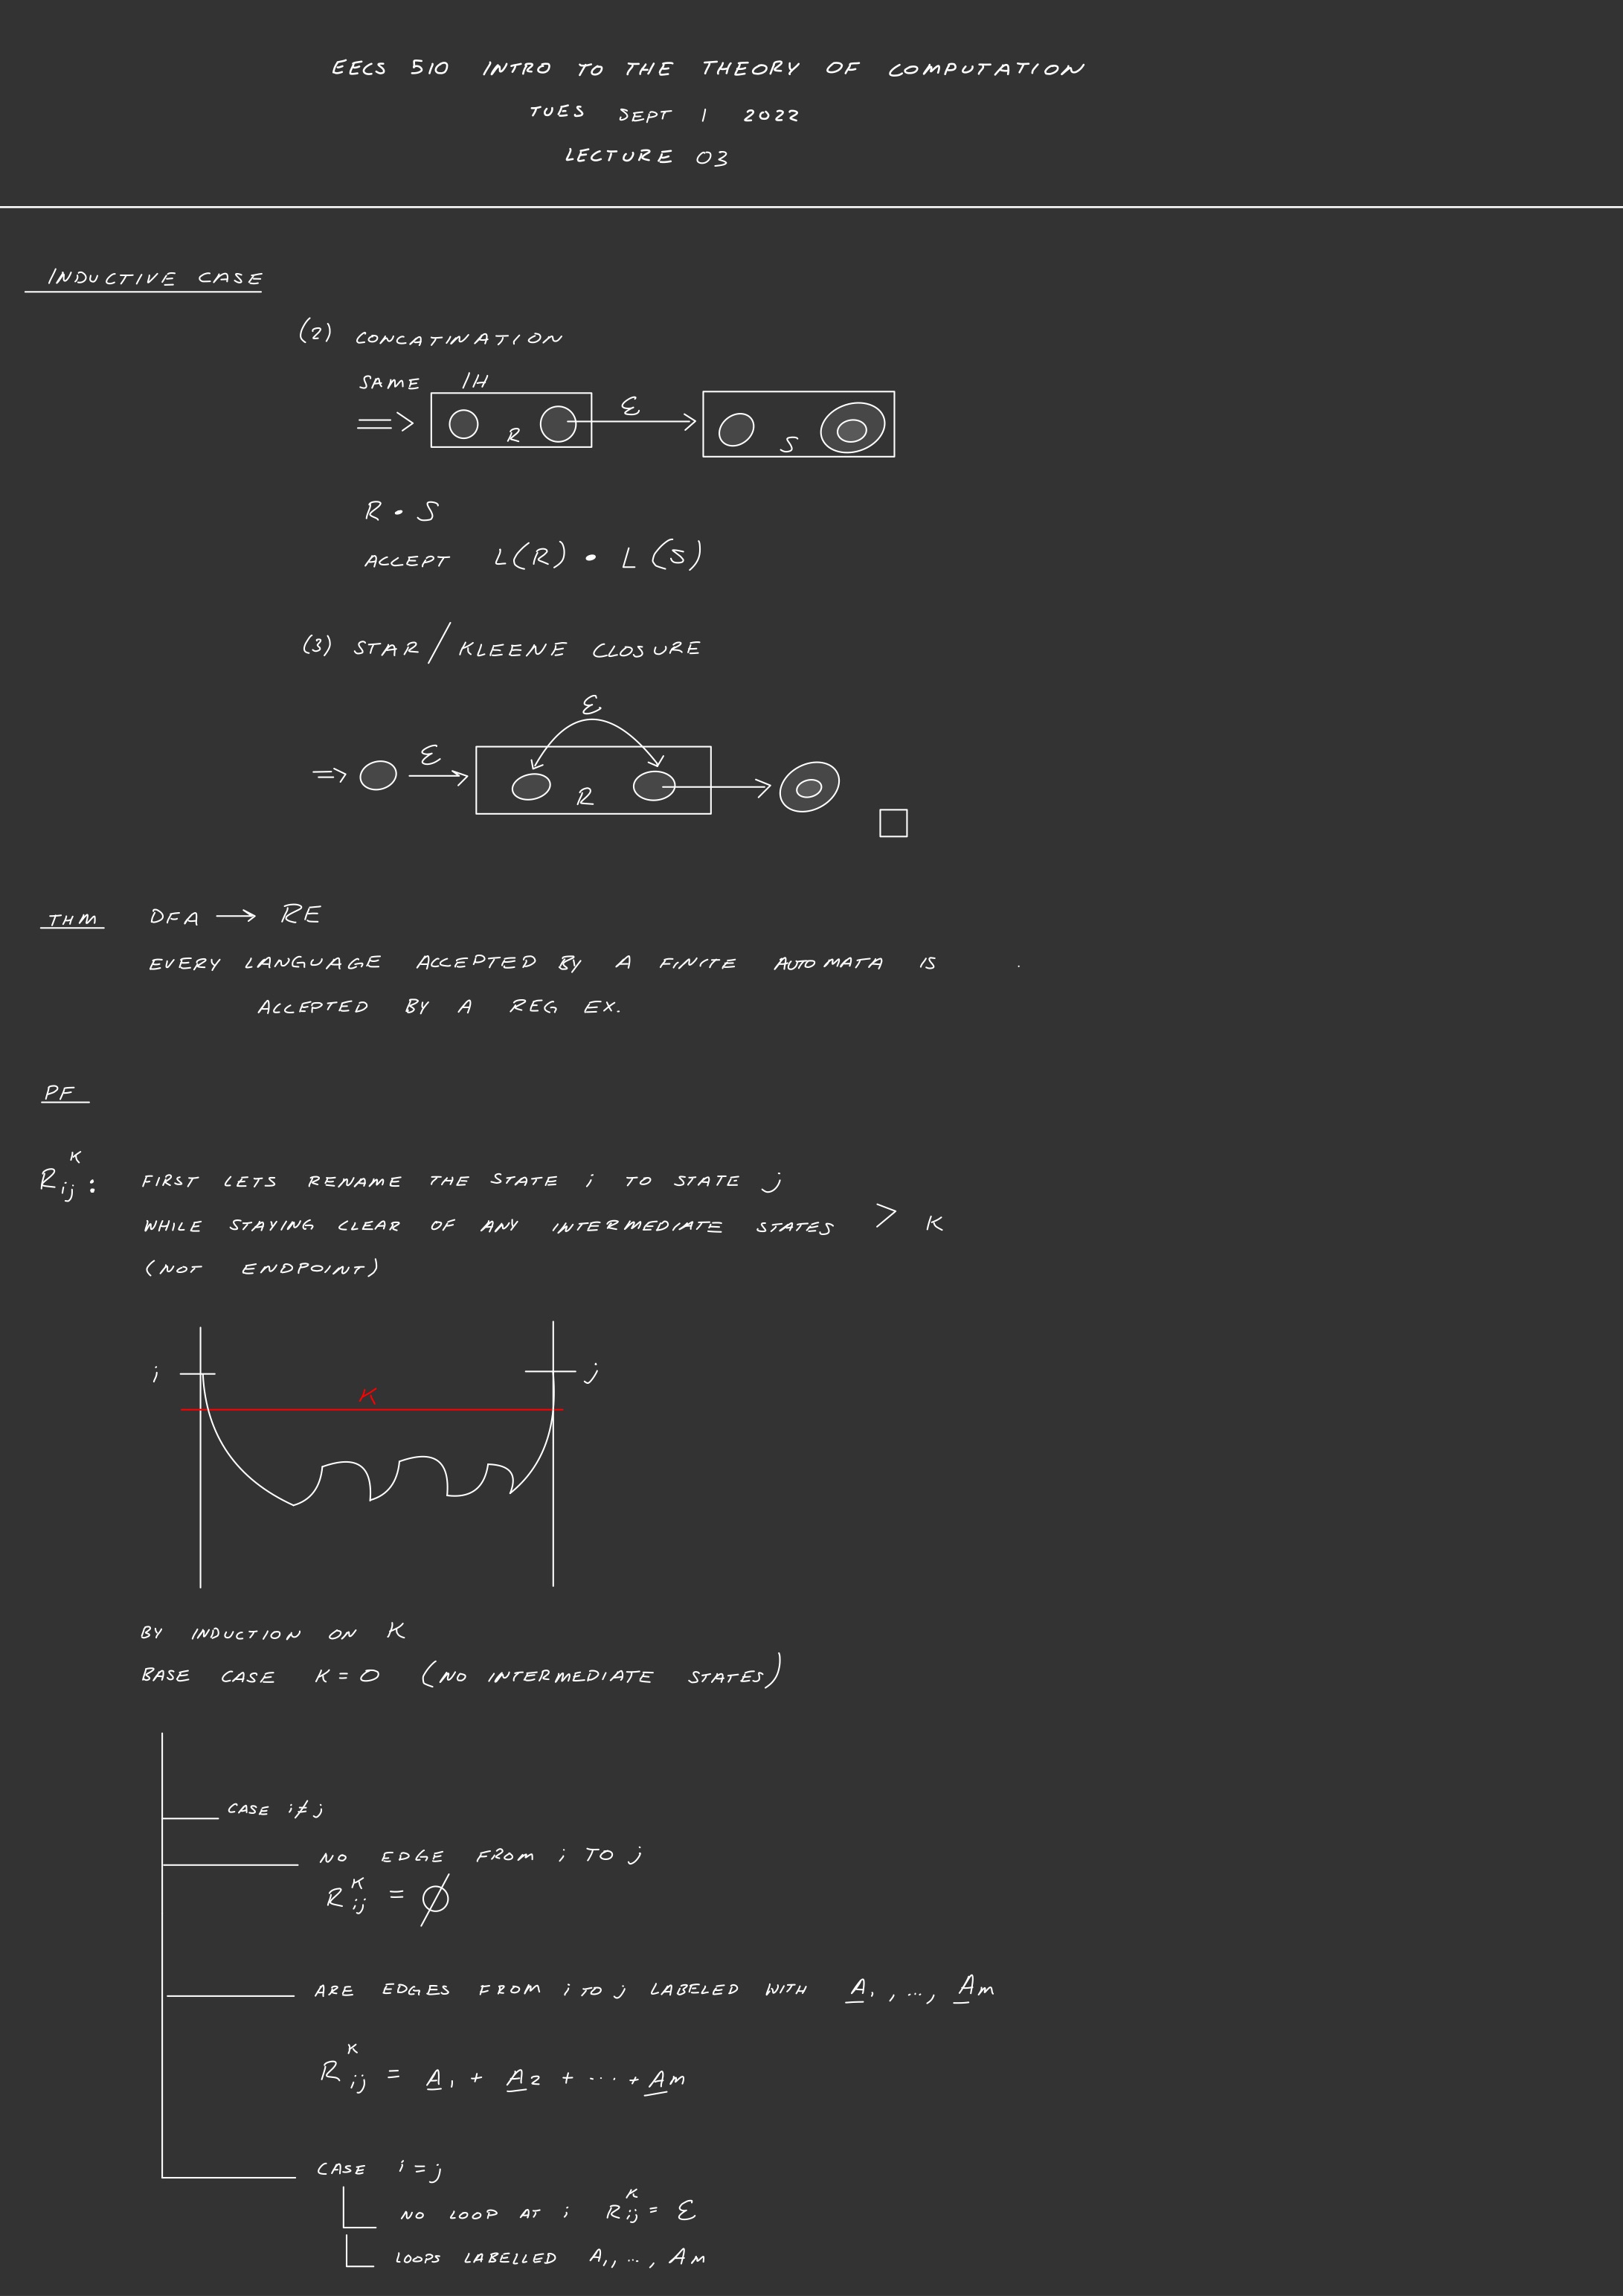 EECS 510 INTRO TO THE THEORY OF COMPUTATION
TUES SEPT 1 2022
LECTURE 03
INDUCTIVE CASE
(2) CONCATINATION
SAME IH
=> R ε S
R • S
ACCEPT L(R) • L(S)
(3) STAR/KLEENE CLOSURE
ε
=> ε R
THM DFA → RE
EVERY LANGUAGE ACCEPTED BY A FINITE AUTOMATA IS .
ACCEPTED BY A REG EX.
PF
R^K_ij: FIRST LETS RENAME THE STATE i TO STATE j
WHILE STAYING CLEAR OF ANY INTERMEDIATE STATES > K
(NOT ENDPOINT)
i j
K
BY INDUCTION ON K
BASE CASE K = 0 (NO INTERMEDIATE STATES)
CASE i ≠ j
NO EDGE FROM i TO j
R^K_ij = ∅
ARE EDGES FROM i TO j LABELED WITH A1, ..., Am
R^K_ij = A1 + A2 + ... + Am
CASE i = j
NO LOOP AT i R^K_ij = ε
LOOPS LABELLED A1, ..., Am